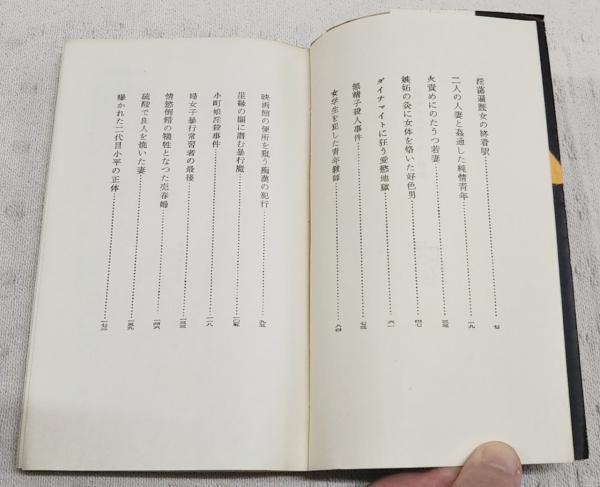 淫蕩遍歴女の終着駅……七
二人の人妻と姦通した純情青年……
火責めにのたうつ若妻……三三
嫉妬の灸に女体を焙いた好色男……四七
ダイナマイトに狂う愛慾地獄……六一
無精子殺人事件……七三
女学生を犯した青年教師……八四
映画館の便所を窺う痴漢の犯行……九五
屋縁の闇に潜む暴行魔……一〇五
小町娘淫殺事件……一一八
婦女子暴行常習者の最後……一三三
情慾倒錯の犠牲となつた売春婦……一四六
硫酸で良人を焼いた妻……一五九
暴かれた二代目小平の正体……一七三